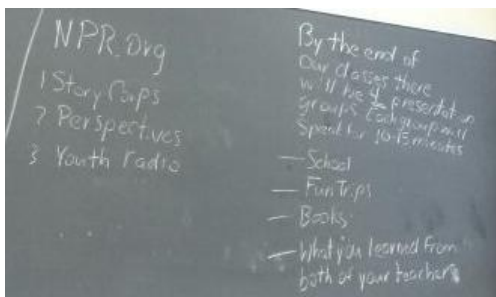 NPR.Org
1 Story Corps
2 Perspectives
3 Youth radio
By the end of
Our classes there
will be 4 presentation
groups. Each group will
Speak for 10-15 minutes
— School
— Fun Trips
— Books
— What you learned from
both of your teachers